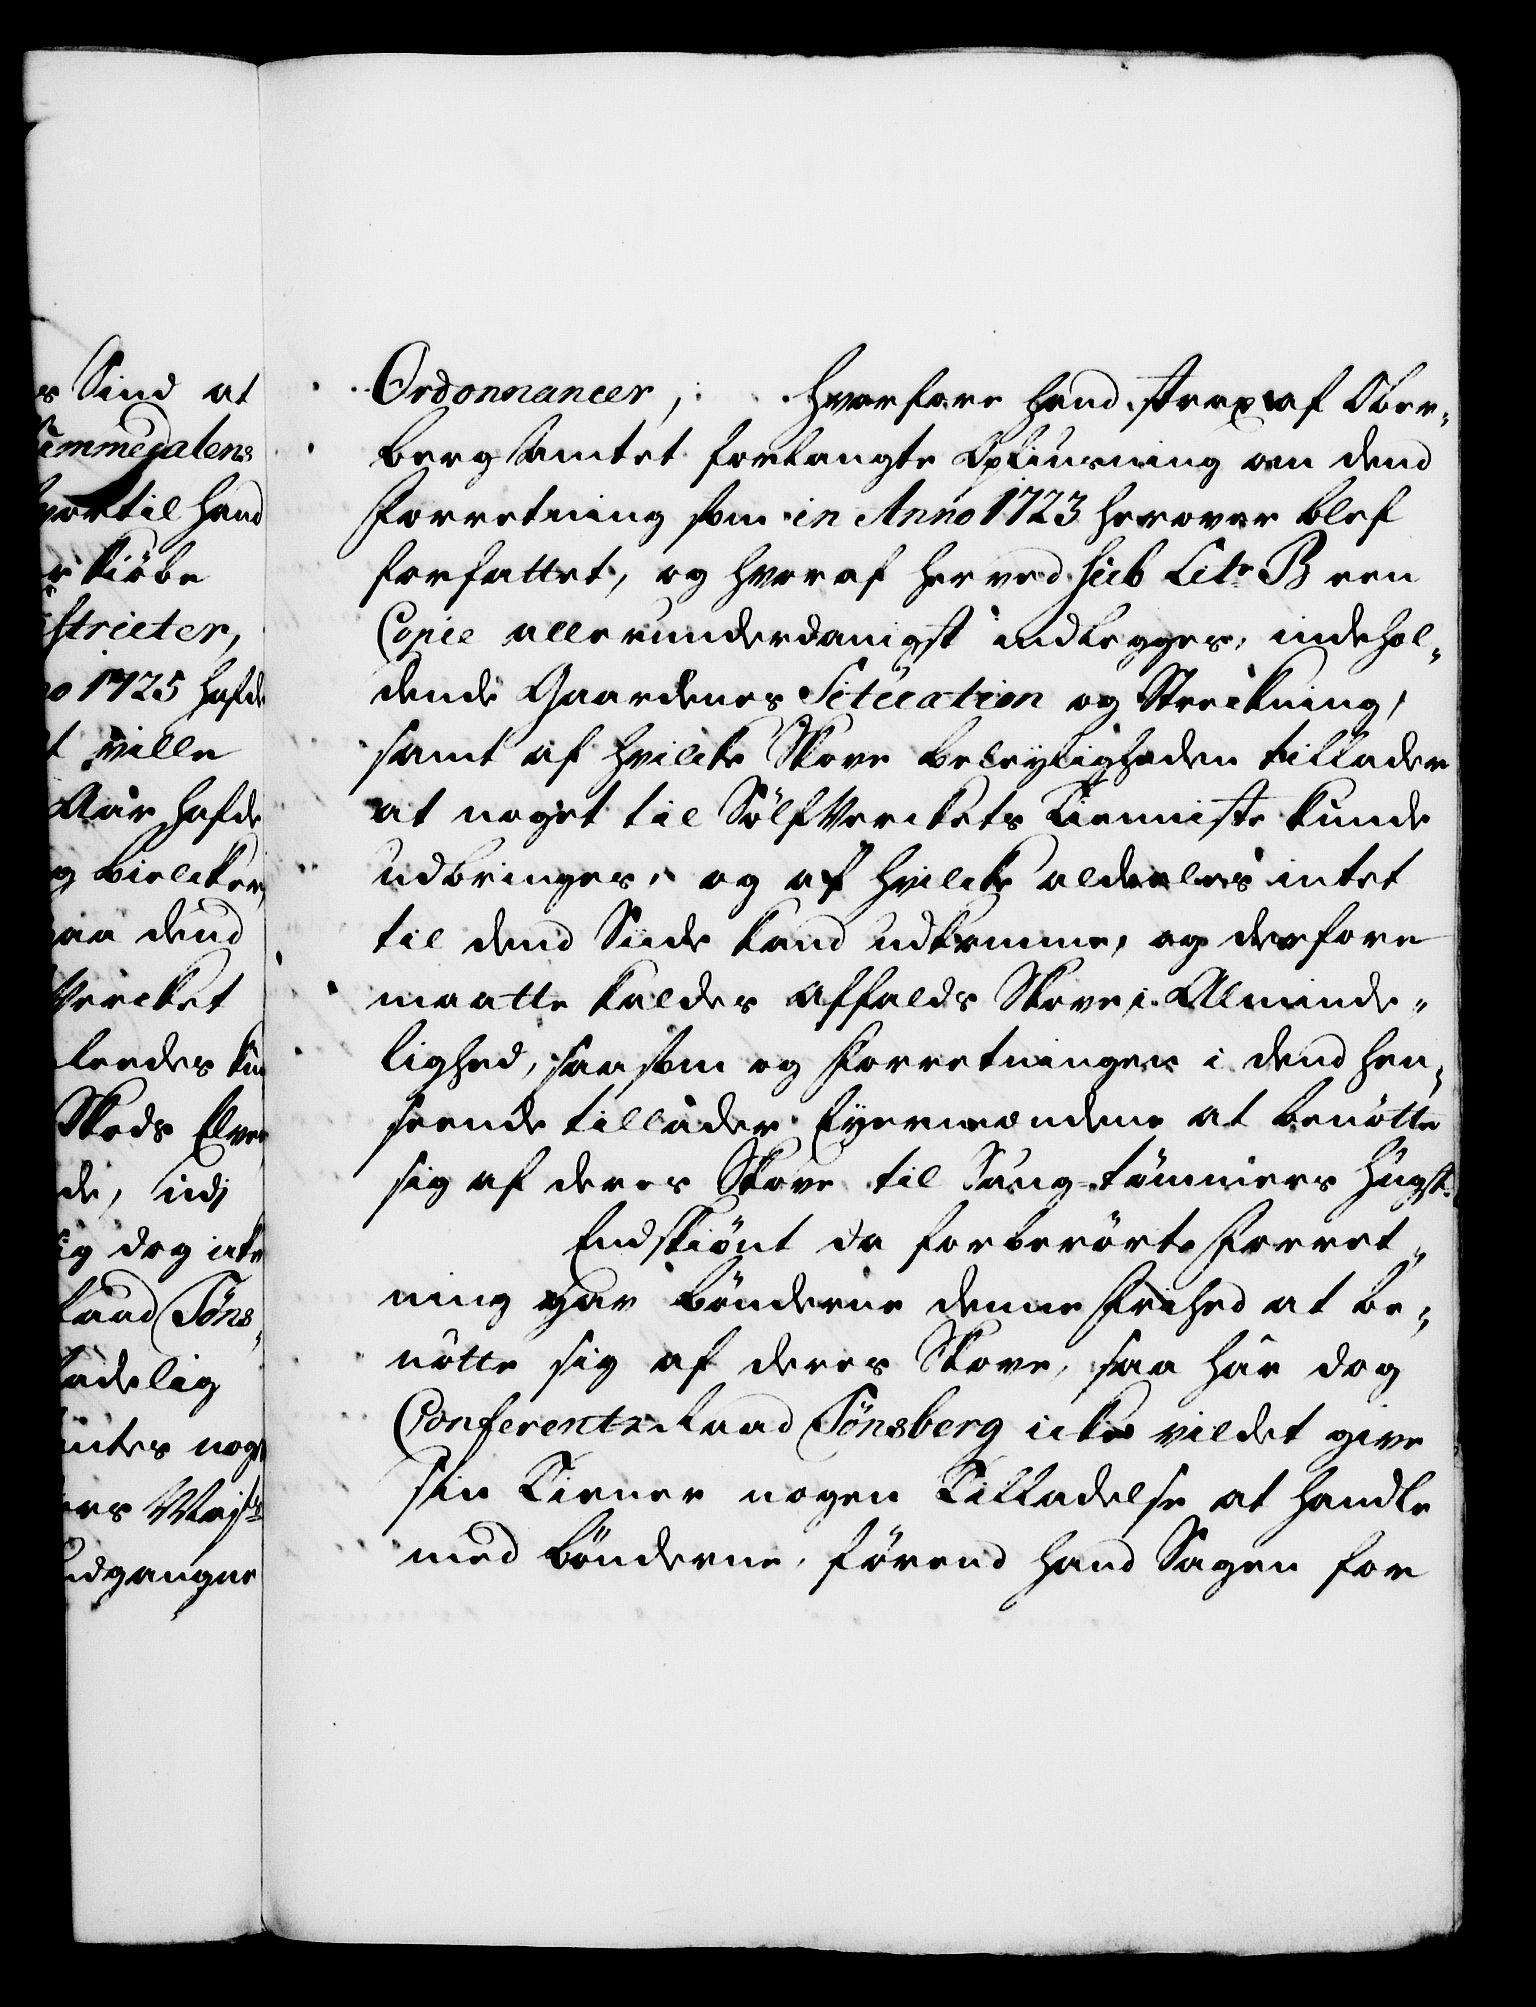 s Sind at
ummedalens
vortil hand
r kiöbe
istricter,
no 1725 hafde
t ville
Aar hafde
g bielcker,
paa dend
Vercket
leedes kun
Skeds Elve
de, udj
ig dog icke
Raad Töns„
ladelig
intes noget
ers Mayts
udgangne
Ordonnancer, hvorfore hand strax af Ober„
berg Amtet forlangte Oplysning om dend
Forretning som in Anno 1723 herover blef
forfattet, og hvoraf herved sub Litr B een
Copie allerunderdanigst indlegges, indehol„
dende Gaardenes Situation og Streckning,
samt af hvilcke Skove beleyligheden tillader
at noget til Sölf Verckets Tienniste kunde
udbringes, og af hvilcke aldeeles intet
til dend Siide kand udkomme, og derfore
maatte kaldes affalds Skove i Alminde„
lighed, saasom og Forretningen i dend hen„
seende tillader Eyermændene at benötte
sig af deres Skove til Saug-tömmers hugst.
Endskiönt da forberörte Forret„
ning gav bönderne denne Frihed at be„
nötte sig af deres Skove, saa har dog
Conferentz Raad Tönsberg icke vildet give
sin Tiener nogen Tilladelse at handle
med bönderne, förend hand Sagen for